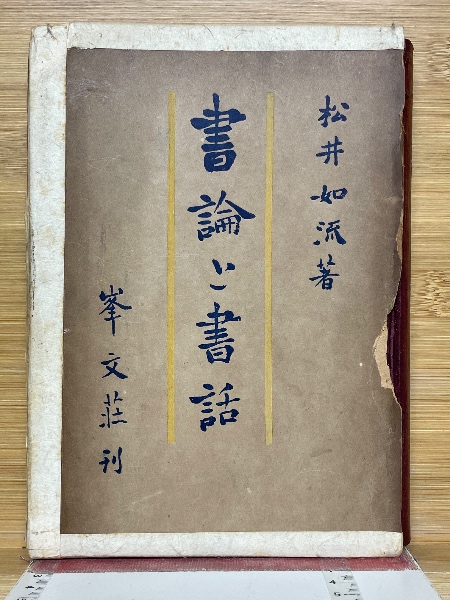 松井如流著
書論と書話
峯文荘刊